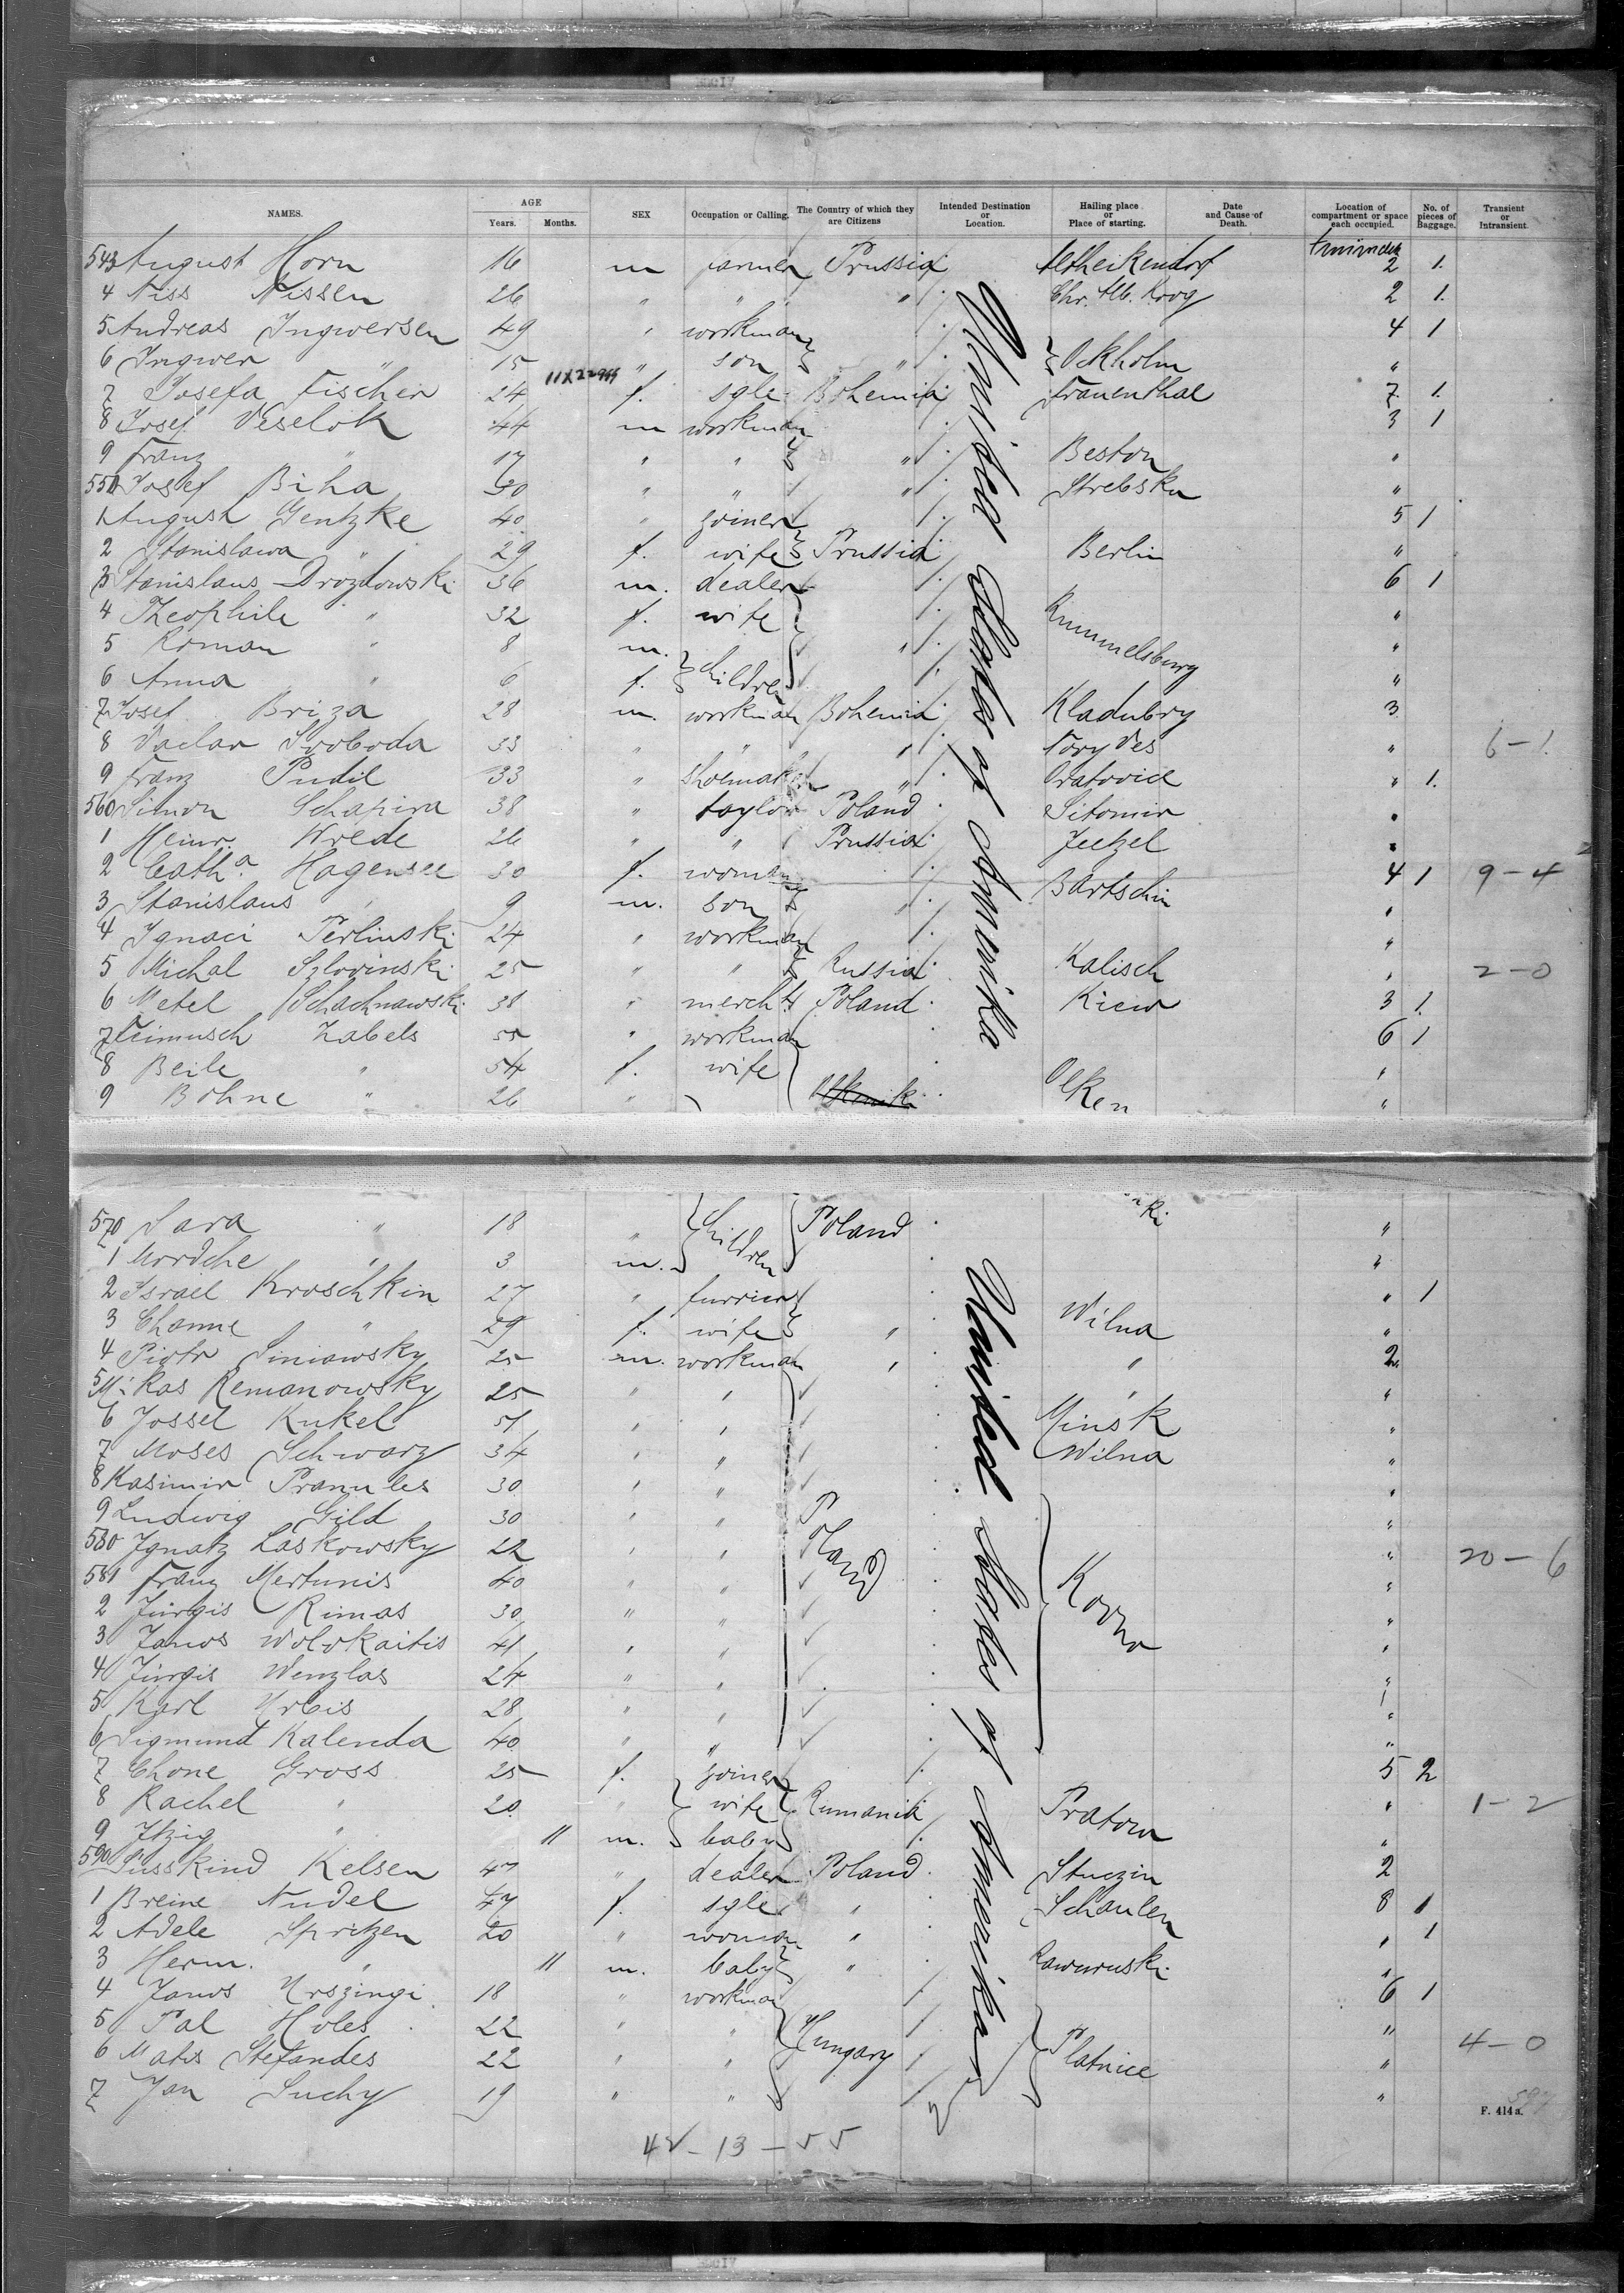 NAMES. AGE Years. Months. SEX Occupation or Calling. The Country of which they are Citizens Intended Destination or Location. Hailing place or Place of starting. Date and Cause of Death. Location of compartment or space each occupied. No. of pieces of Baggage. Transient or Intransient
543 August Horn 16 m farmer Prussia 2 1.
4 Niss Nissen 26 " " " Chr. Alb. Koog 2 1.
5 Andreas Ingwersen 49 " workman 4 1
6 Ingwer " 15 " son " Ockholm "
7 Josefa Fischer 24 f. sgle Bohemia Frauenthal 7 1.
8 Josef Veselok 44 m workman 3 1
9 Franz " 17 " " " Beston "
550 Josef Biha 30 " " " Strebska "
1 August Gentzke 40 " joiner 5 1
2 Stanislawa " 29 f. wife Prussia Berlin "
3 Stanislaus Drozdowski 36 m. dealer 6 1
4 Theophile " 32 f. wife Rummelsburg "
5 Roman " 8 m. children " "
6 Anna " 6 f. "
7 Josef Briza 28 m. workman Bohemia Kladubry 3
8 Vaclav Svoboda 33 " " " " 6-1
9 Franz Pudil 33 " shoemaker " " 1.
560 Simon Schapira 38 " taylor Poland Sitomir "
1 Heinr. Wrede 26 " " Prussia Jeetzel "
2 Cath.a Hagensee 30 f. woman Bartschin 4 1 9-4
3 Stanislaus " 9 m. son " "
4 Ignaci Perlinski 24 " workman "
5 Michal Szlovinski 25 " " Russia Kalisch " 2-0
6 Metel Schachnawski 38 " merch't Poland Kiew 3 1.
7 Zabels 55 " workman 6 1
8 Beile " 54 f. wife "
9 Bohne " 26 " Olken "
570 Sara " 18 " children Poland ki "
1 Mordche " 3 m. "
2 Israel Kroschkin 27 " furrier " 1
3 Channe " 29 f. wife " Wilna "
4 Piotr Siniawsky 25 m. workman " " 2
5 Mikas Remanowsky 25 " " " "
6 Jossel Kukel 51 " " Minsk "
7 Moses Schwarz 34 " " Wilna "
8 Kasimir Pranules 30 " " "
9 Ludwig Gild 30 " " Poland "
580 Ignatz Laskowsky 22 " " " 20-6
581 Franz Mertunis 40 " " Kovno "
2 Jurgis Rimas 30 " " "
3 Janos Wolokaitis 41 " " "
4 Jurgis Wenzlas 24 " " "
5 Karl Urbis 28 " " "
6 Sigmund Kalenda 40 " " "
7 Chone Gross 25 f. joiner 5 2
8 Rachel " 20 " wife Rumania " 1-2
9 Itzig " 11 m. baby "
590 Susskind Kelsen 47 " dealer Poland Stuczin 2
1 Breine Nudel 47 f. sgle " Schaulen 8 1
2 Adele Spritzen 20 " woman " " 1
3 Herm. " 11 m. baby " "
4 Janos Urszingi 18 " workman 6 1
5 Pal Holes 22 " " Hungary " 4-0
6 Matis Stefandes 22 " " Platnice "
7 Jan Suchy 19 " " "
United States of Amerika
United States of Amerika
597
F. 414 a.
42-13-55